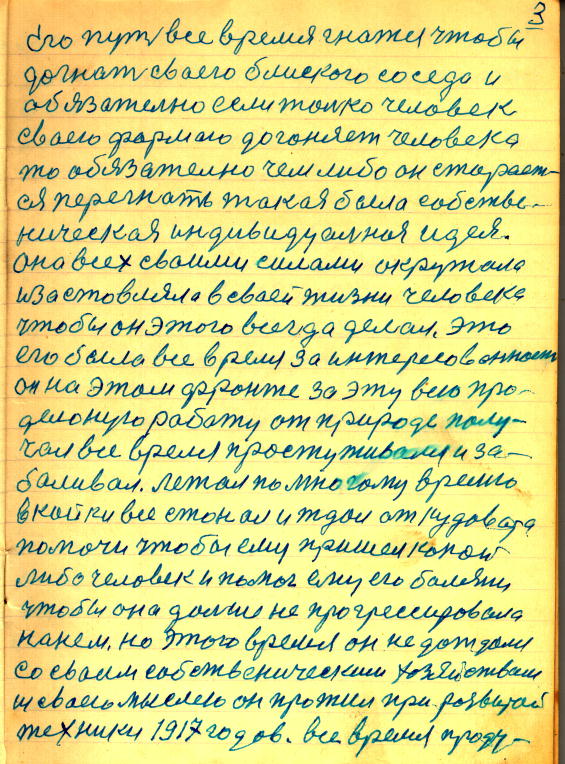 3
Его путь все время гнатся чтобы
догнать своего блиского соседа и
обязателно если толко человек
своею формаю догоняет человека
то обязателно чем либо он старает-
ся перегнать такая была собстве-
ническая индивидуалная идея.
Она всех своими силами окружала
и застовляла в своей жизни человека
чтобы он этого всегда делал. Это
его была все время заинтересованность
он на этом фронте за эту всю про-
делоную работу от природе полу-
чал все время простуживался и за-
баливал. лежал по многому времю
в койки все стонал и ждал откудова та
помочи чтобы ему пришел какой
либо человек и помог ему его болезни
чтобы она дальше не прогрессировала
на нем. но этого время он не дождался
со своим собственическим хозяйством
и своею мыслею он прожил при развитой
техники 1917 годов. все время проду-